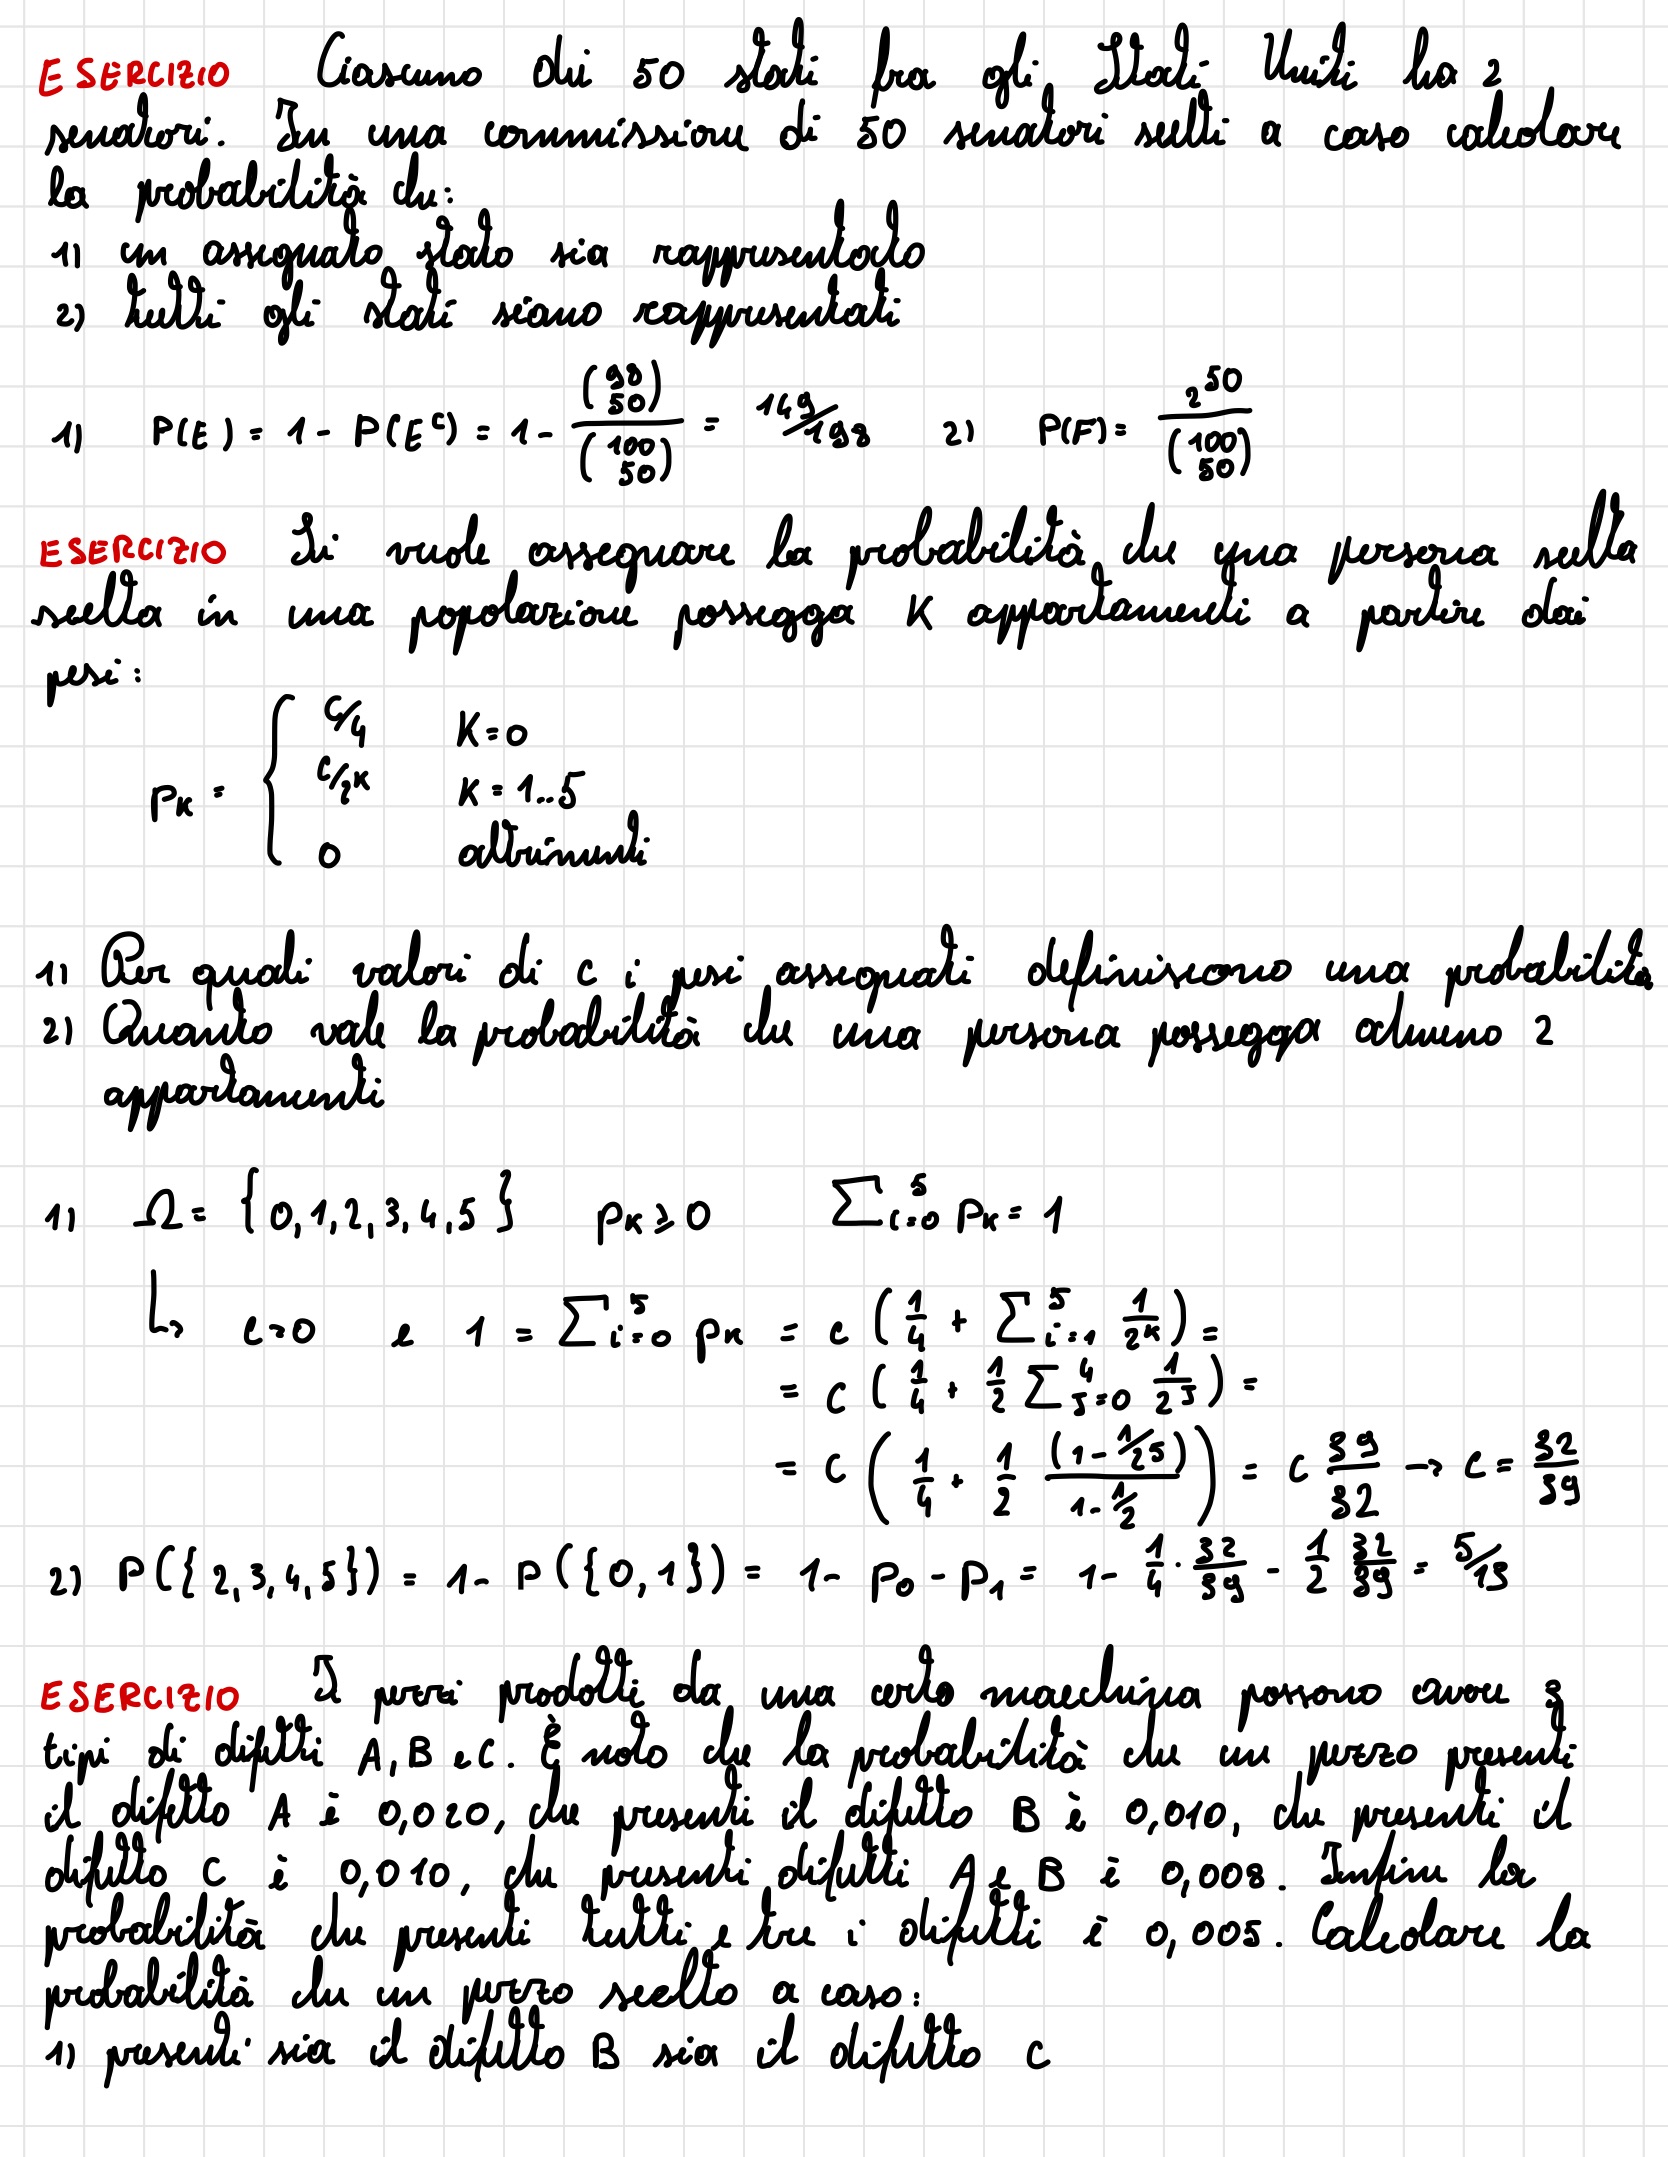 ESERCIZIO Ciascuno dei 50 stati fra gli Stati Uniti ha 2
senatori. In una commissione di 50 senatori scelti a caso calcolare
la probabilità che:
1) un assegnato stato sia rappresentato
2) tutti gli stati siano rappresentati
1) P(E) = 1 - P(E^C) = 1 - \frac{\binom{98}{50}}{\binom{100}{50}} = 149/198 2) P(F) = \frac{2^{50}}{\binom{100}{50}}
ESERCIZIO Si vuole assegnare la probabilità che una persona scelta
scelta in una popolazione possegga K appartamenti a partire dai
pesi:
p_K = { C/4 K=0
C/2^K K=1..5
0 altrimenti
1) Per quali valori di c i pesi assegnati definiscono una probabilità
2) Quanto vale la probabilità che una persona possegga almeno 2
appartamenti
1) Ω = {0,1,2,3,4,5} p_K ≥ 0 Σ_{i=0}^5 p_K = 1
↳ c>0 e 1 = Σ_{i=0}^5 p_K = c (1/4 + Σ_{i=1}^5 1/2^K) =
= C (1/4 + 1/2 Σ_{J=0}^4 1/2^J) =
= C (1/4 + 1/2 \frac{(1-1/2^5)}{1-1/2}) = C 39/32 → C = 32/39
2) P({2,3,4,5}) = 1- P({0,1}) = 1- p_0 - p_1 = 1- 1/4 · 32/39 - 1/2 32/39 = 5/13
ESERCIZIO I pezzi prodotti da una certa macchina possono avere 3
tipi di difetti A, B e C. È noto che la probabilità che un pezzo presenti
il difetto A è 0,020, che presenti il difetto B è 0,010, che presenti il
difetto C è 0,010, che presenti difetti A e B è 0,008. Infine la
probabilità che presenti tutti e tre i difetti è 0,005. Calcolare la
probabilità che un pezzo scelto a caso:
1) presenti sia il difetto B sia il difetto C